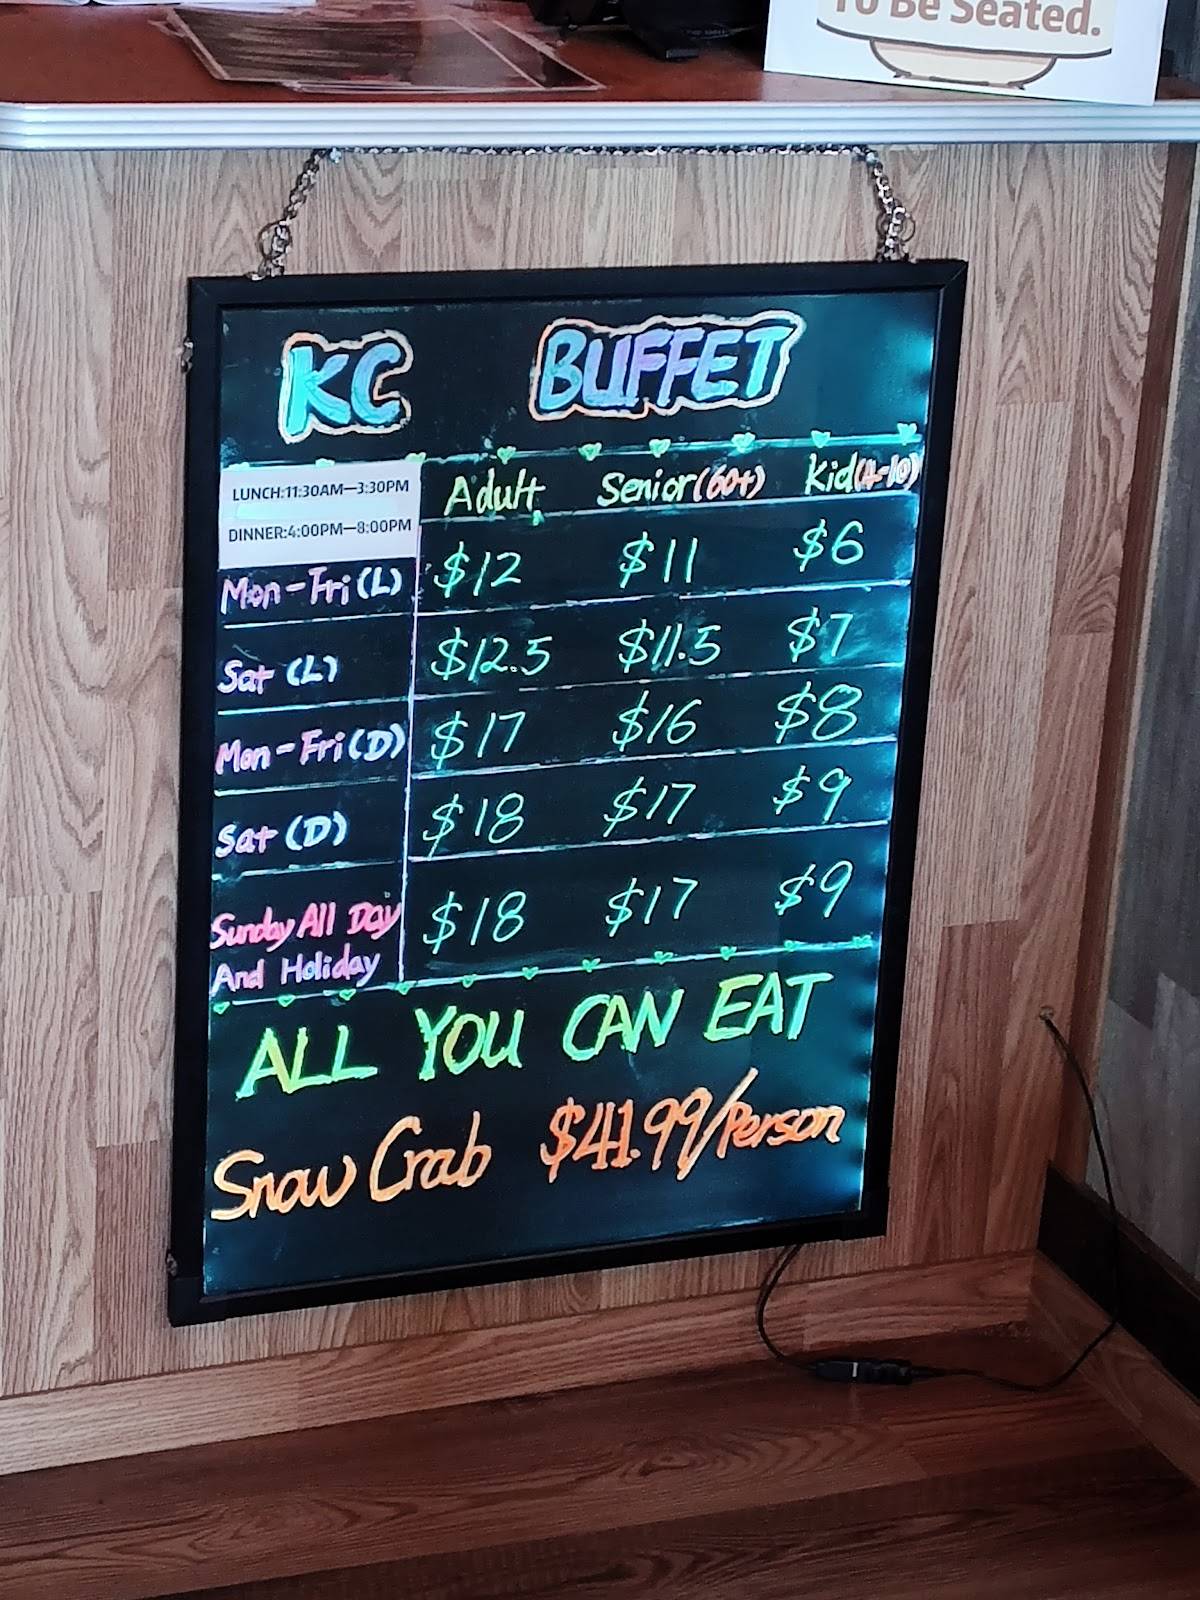 To Be Seated.
KC BUFFET
LUNCH:11:30AM—3:30PM
DINNER:4:00PM—8:00PM
Adult Senior(60+) Kid(4-10)
Mon-Fri(L) $12 $11 $6
Sat (L) $12.5 $11.5 $7
Mon-Fri(D) $17 $16 $8
Sat (D) $18 $17 $9
Sunday All Day $18 $17 $9
And Holiday
ALL YOU CAN EAT
Snow Crab $41.99/Person